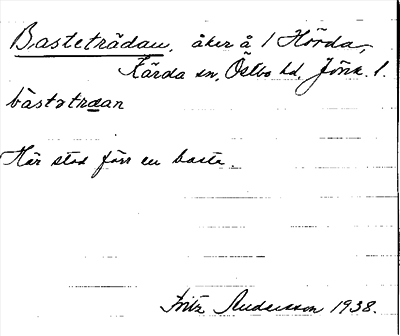 Basteträdan, åker å 1 Hörda,
Kärda sn, Östbo hd, Jönk. l.
bàstətræan
Här stod förr en basta.
Fritz Andersson 1938.